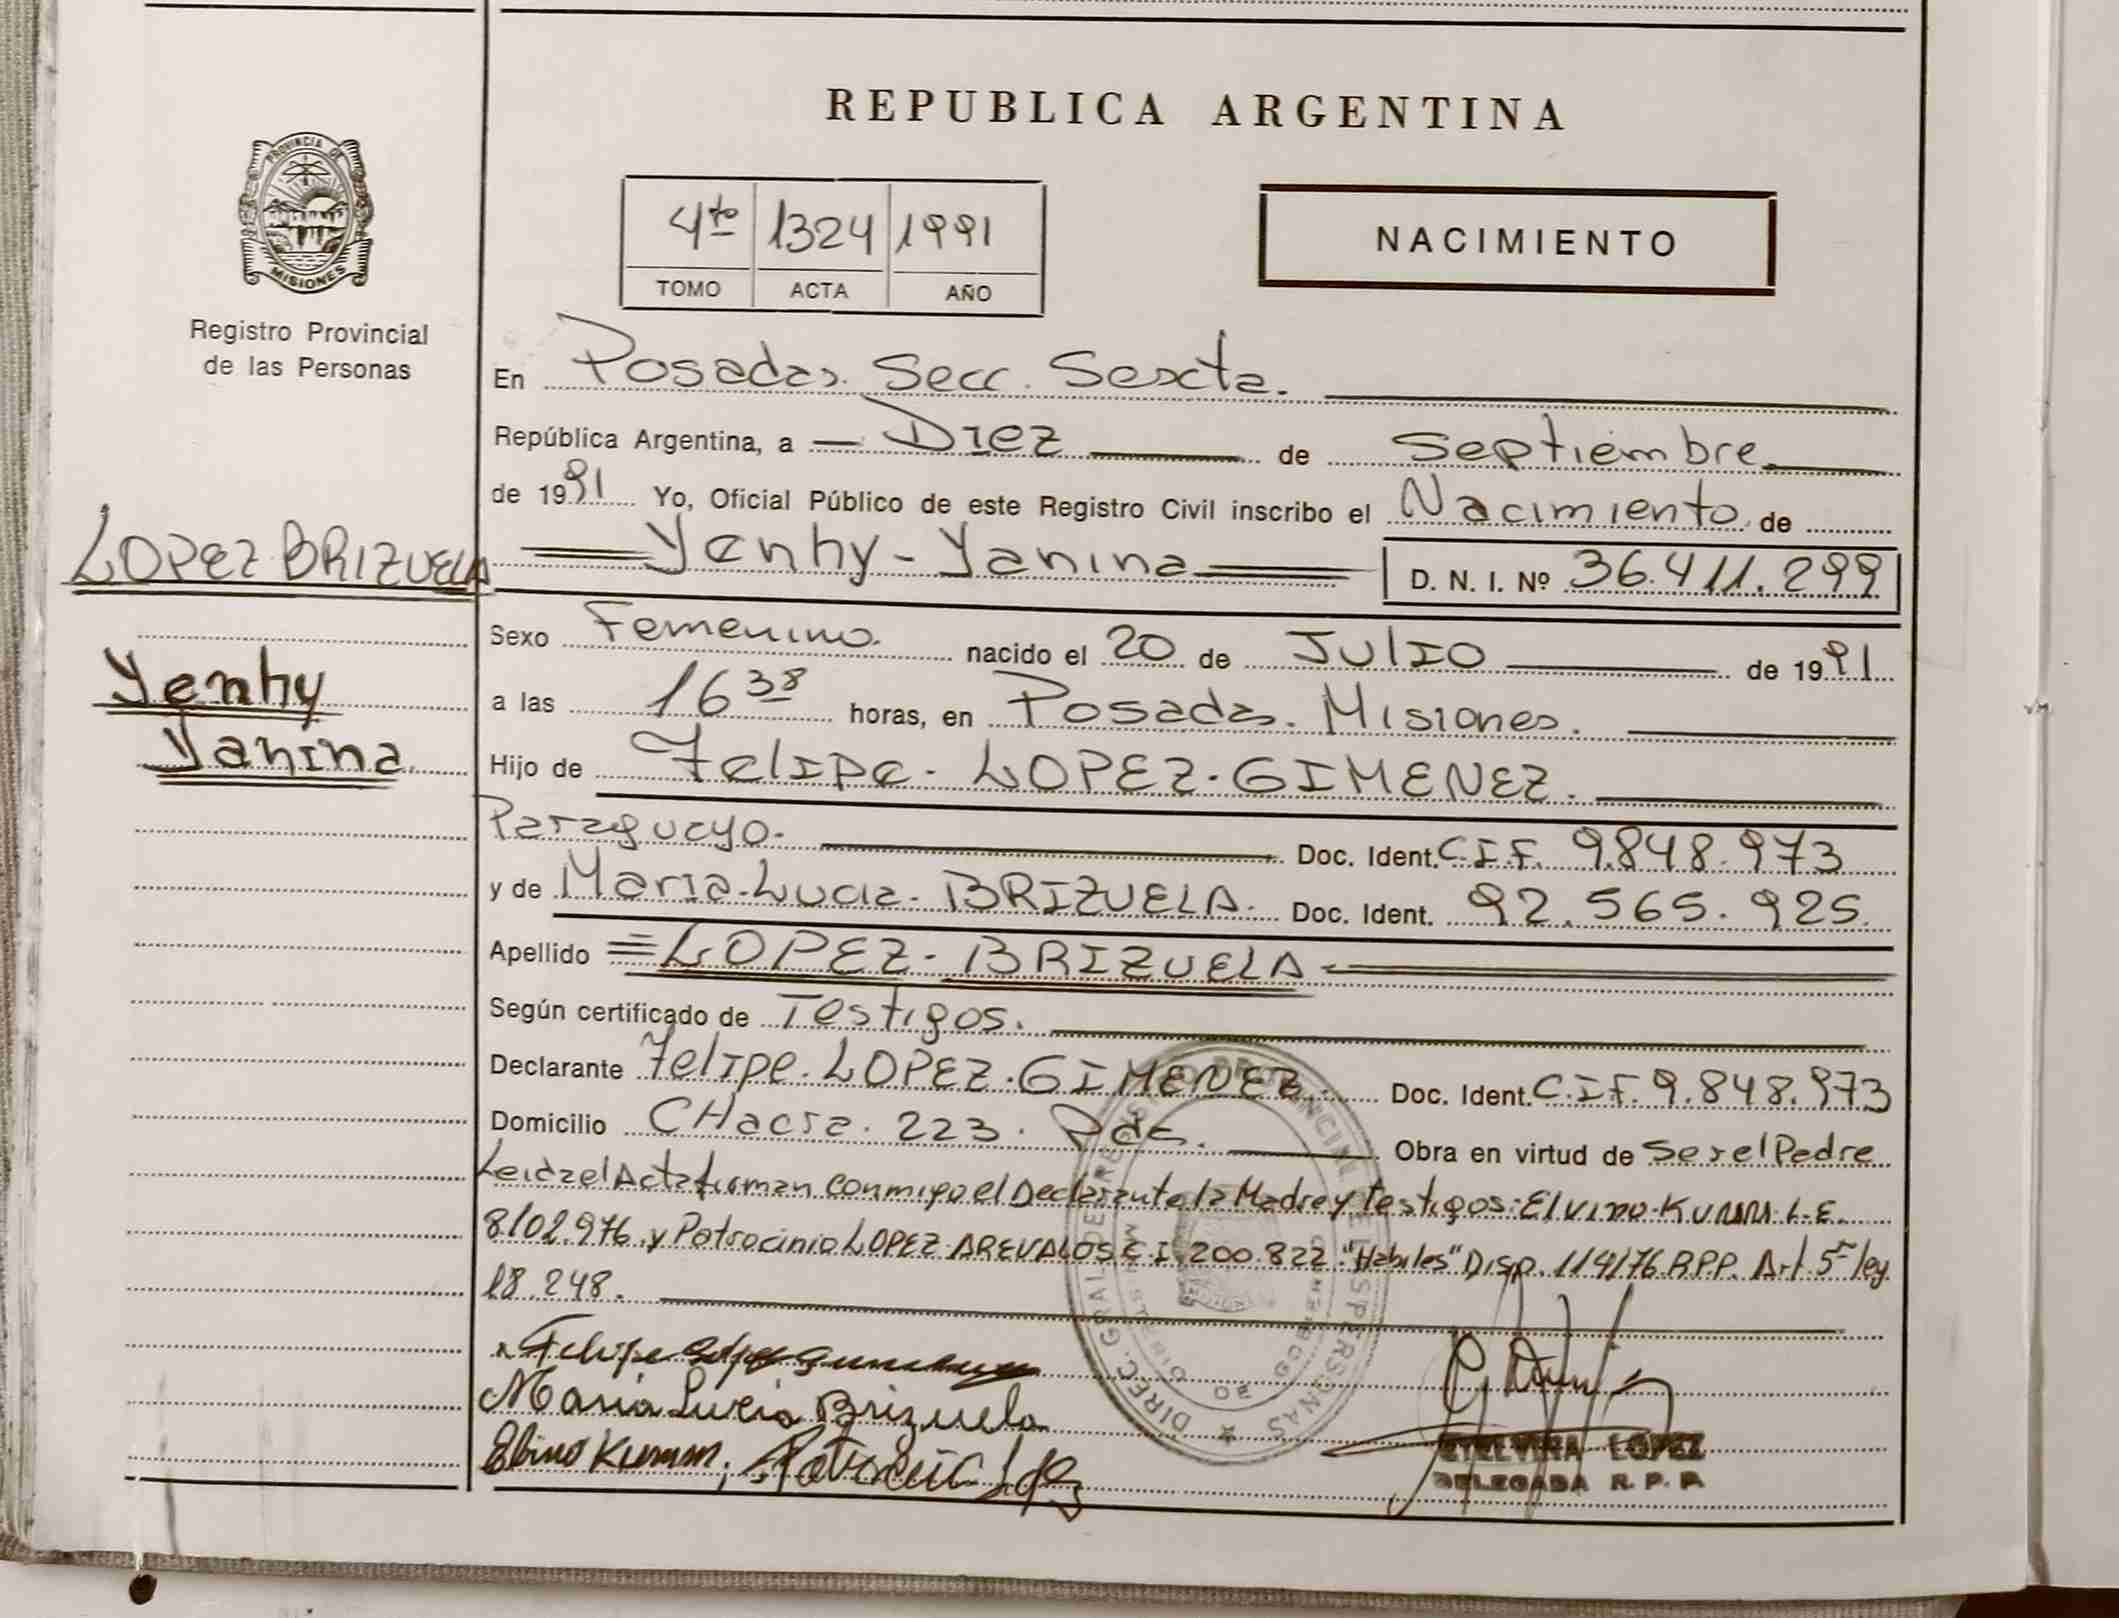 REPUBLICA ARGENTINA
PROVINCIA DE
MISIONES
Registro Provincial
de las Personas
4to 1324 1991
TOMO ACTA AÑO
NACIMIENTO
En Posadas. Secc. Sexta.
República Argentina, a Diez de Septiembre
de 1991 Yo, Oficial Público de este Registro Civil inscribo el Nacimiento de
LOPEZ BRIZUELA
Yenhy
Yanina
Yenhy - Yanina D. N. I. Nº 36.411.299
Sexo Femenino. nacido el 20 de Julio de 1991
a las 16 38 horas, en Posadas. Misiones.
Hijo de Felipe. LOPEZ. GIMENEZ.
Paraguayo. Doc. Ident. C.I.F. 9.848.973
y de Maria. Lucia. BRIZUELA. Doc. Ident. 92.565.925.
Apellido LOPEZ. BRIZUELA
Según certificado de Testigos.
Declarante Felipe. LOPEZ. GIMENEZ. Doc. Ident. C.I.F. 9.848.973
Domicilio CHacra. 223. Pdas. Obra en virtud de Ser el Padre
Leida el Acta firman conmigo el Declarante la Madre y testigos: Elvino. KUMM. L.E.
8102.976. y Patrocinio LOPEZ AREVALOS. C.I. 200.822. "Habiles" Disp. 114/76. R.P.P. Art. 5º ley
18.248.
Felipe Lopez
Maria Lucia Brizuela
Elbino Kumm. Patrocinio Lopez
LOPEZ
DELEGADA R. P. P.